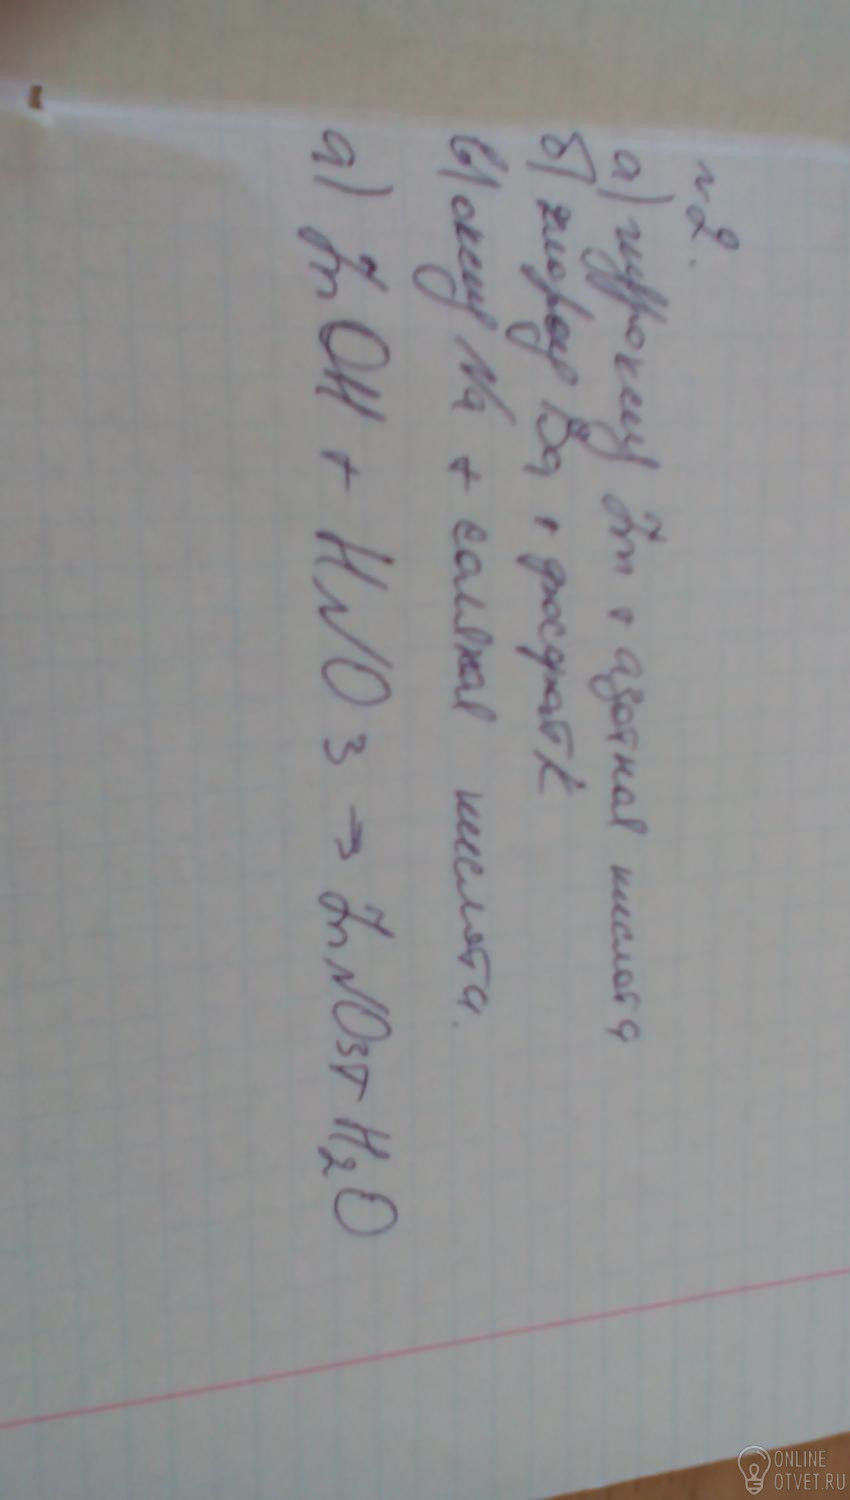 №2.
а) гидроксид Zn + азотная кислота
б) хлорид Ba + фосфат K
в) оксид Na + соляная кислота.
а) ZnOH + HNO3 → ZnNO3 + H2O
ONLINE
OTVET.RU